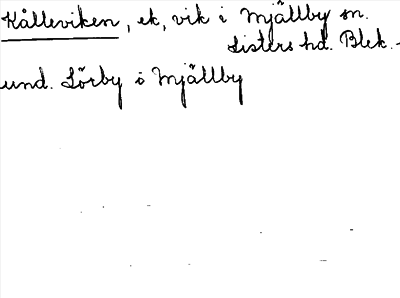 Kålleviken, ek, vik i Mjällby sn.
Listers hd. Blek.
und. Lörby i Mjällby